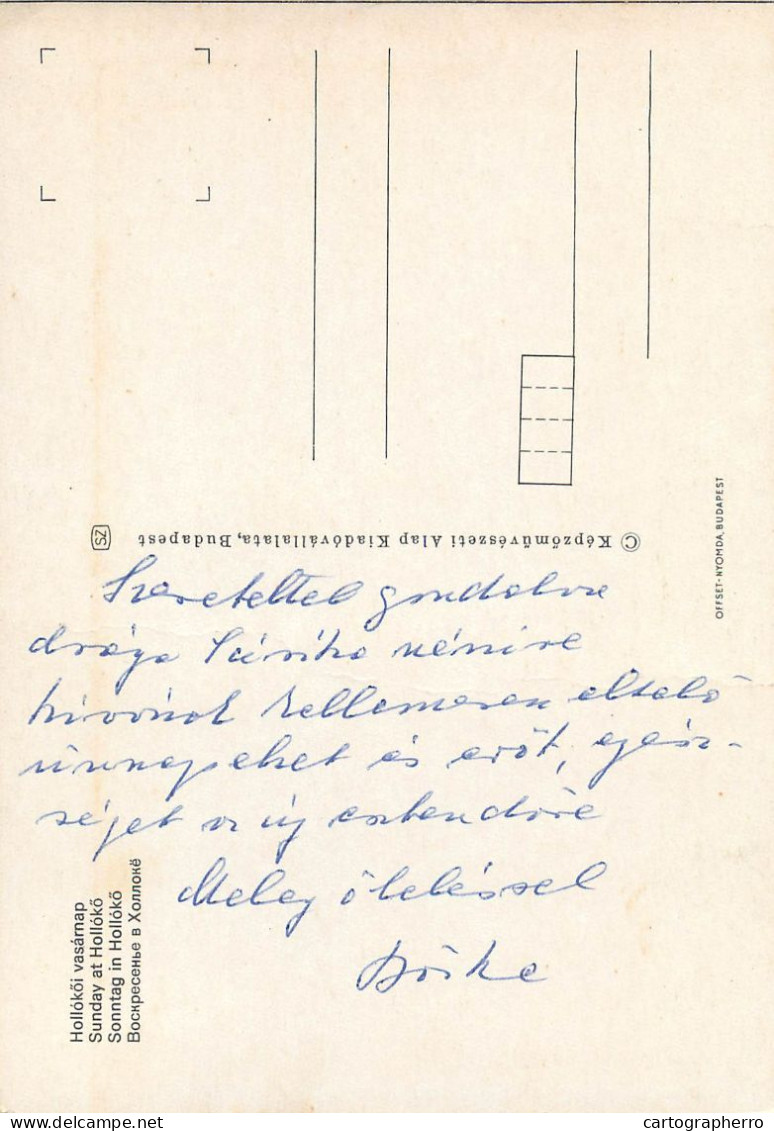 SZ
© Képzőművészeti Alap Kiadóvállalata, Budapest
OFFSET-NYOMDA, BUDAPEST
Szeretettel gondolva
drága Sárika nénire
kívánok kellemesen eltelő
ünnepeket és erőt, egész-
séget az új esztendőre
Meleg öleléssel
Hollókői vasárnap
Sunday at Hollókő
Sonntag in Hollókő
Воскресенье в Холлокё
delcampe.net
cartographerro